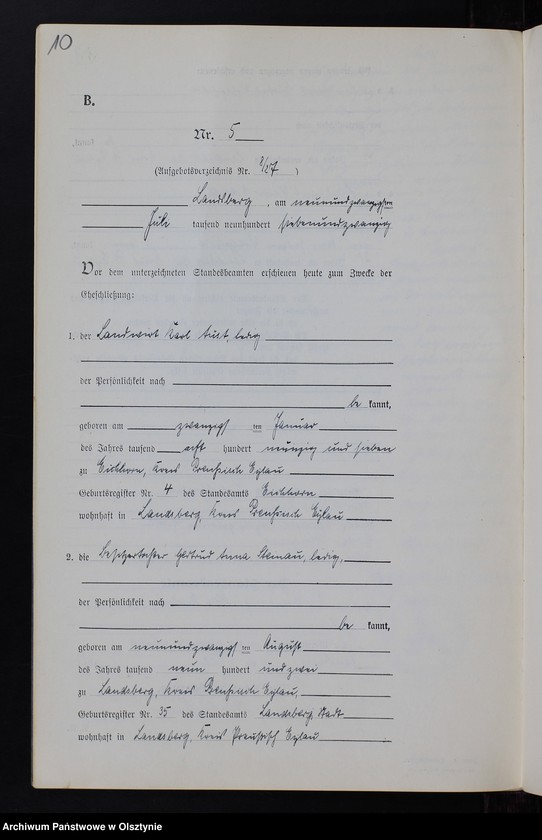 10
B.
Nr. 5
(Aufgebotsverzeichnis Nr. 8/27)
Landsberg, am neunundzwanzigsten
Juli tausend neunhundert siebenundzwanzig
Vor dem unterzeichneten Standesbeamten erschienen heute zum Zwecke der
Eheschließung:
1. der Landwirt Karl Aust, ledig
der Persönlichkeit nach
be kannt,
geboren am zwanzigsten Januar
des Jahres tausend acht hundert neunzig und sieben
zu Eichhorn, Kreis Preußisch Eylau
Geburtsregister Nr. 4 des Standesamts Eichhorn
wohnhaft in Landsberg, Kreis Preußisch Eylau
2. die Besitzertochter Gertrud Anna ledig,
der Persönlichkeit nach
be kannt,
geboren am neunundzwanzigsten August
des Jahres tausend neun hundert und zwei
zu Landsberg, Kreis Preußisch Eylau,
Geburtsregister Nr. 35 des Standesamts Landsberg, Stadt
wohnhaft in Landsberg, Kreis Preußisch Eylau
Archiwum Państwowe w Olsztynie